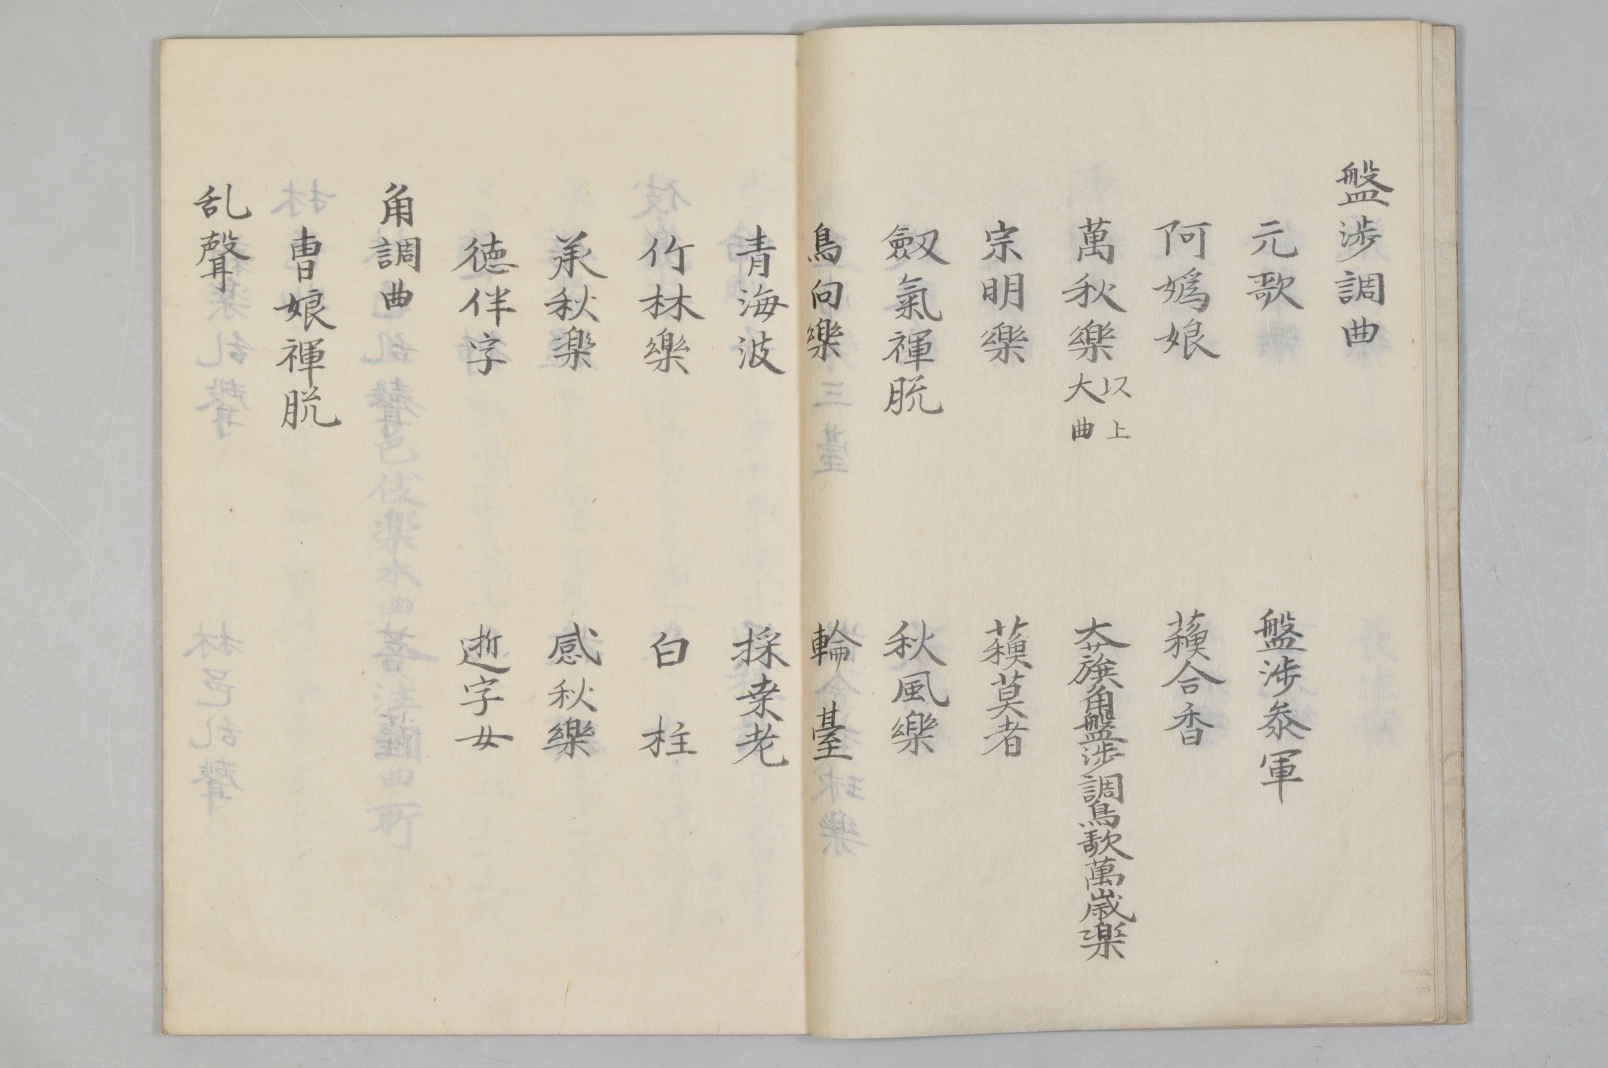 盤渉調曲
元歌　盤渉叅軍
阿嫣娘　蘓合香
萬秋樂 以上大曲　大蔟角盤渉調鳥歌萬歳楽
宗明樂　蘓莫者
劔氣褌脱　秋風樂
鳥向樂　輪臺
青海波　採桒老
竹林樂　白柱
承秋楽　感秋樂
徳伴字　逝字女
角調曲
曹娘褌脱
乱聲